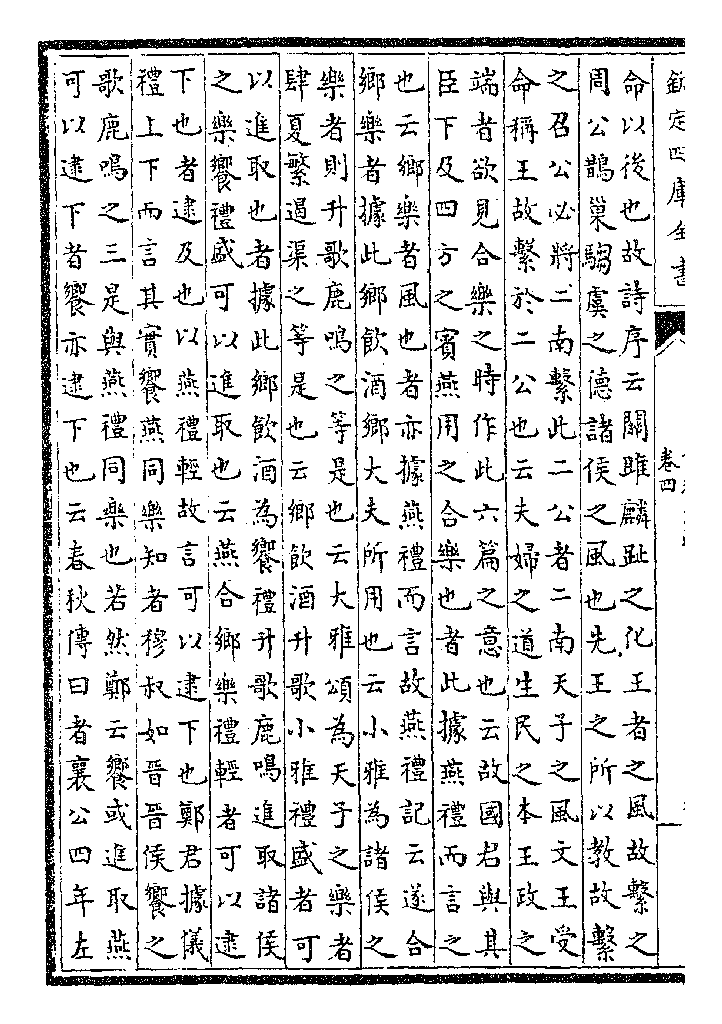 欽定四庫全書
卷四
命以後也故詩序云關雎麟趾之化王者之風故繫之
周公鵲巢騶虞之德諸侯之風也先王之所以教故繫
之召公必將二南繫此二公者二南天子之風文王受
命稱王故繫於二公也云夫婦之道生民之本王政之
端者欲見合樂之時作此六篇之意也云故國君與其
臣下及四方之賓燕用之合樂也者此據燕禮而言之
也云鄉樂者風也者亦據燕禮而言故燕禮記云遂合
鄉樂者據此鄉飲酒鄉大夫所用也云小雅為諸侯之
樂者則升歌鹿鳴之等是也云大雅頌為天子之樂者
肆夏繁遏渠之等是也云鄉飲酒升歌小雅禮盛者可
以進取也者據此鄉飲酒為饗禮升歌鹿鳴進取諸侯
之樂饗禮盛可以進取也云燕合鄉樂禮輕者可以逮
下也者逮及也以燕禮輕故言可以逮下也鄭君據儀
禮上下而言其實饗燕同樂知者穆叔如晉晉侯饗之
歌鹿鳴之三是與燕禮同樂也若然鄭云饗或進取燕
可以逮下者饗亦逮下也云春秋傳曰者襄公四年左